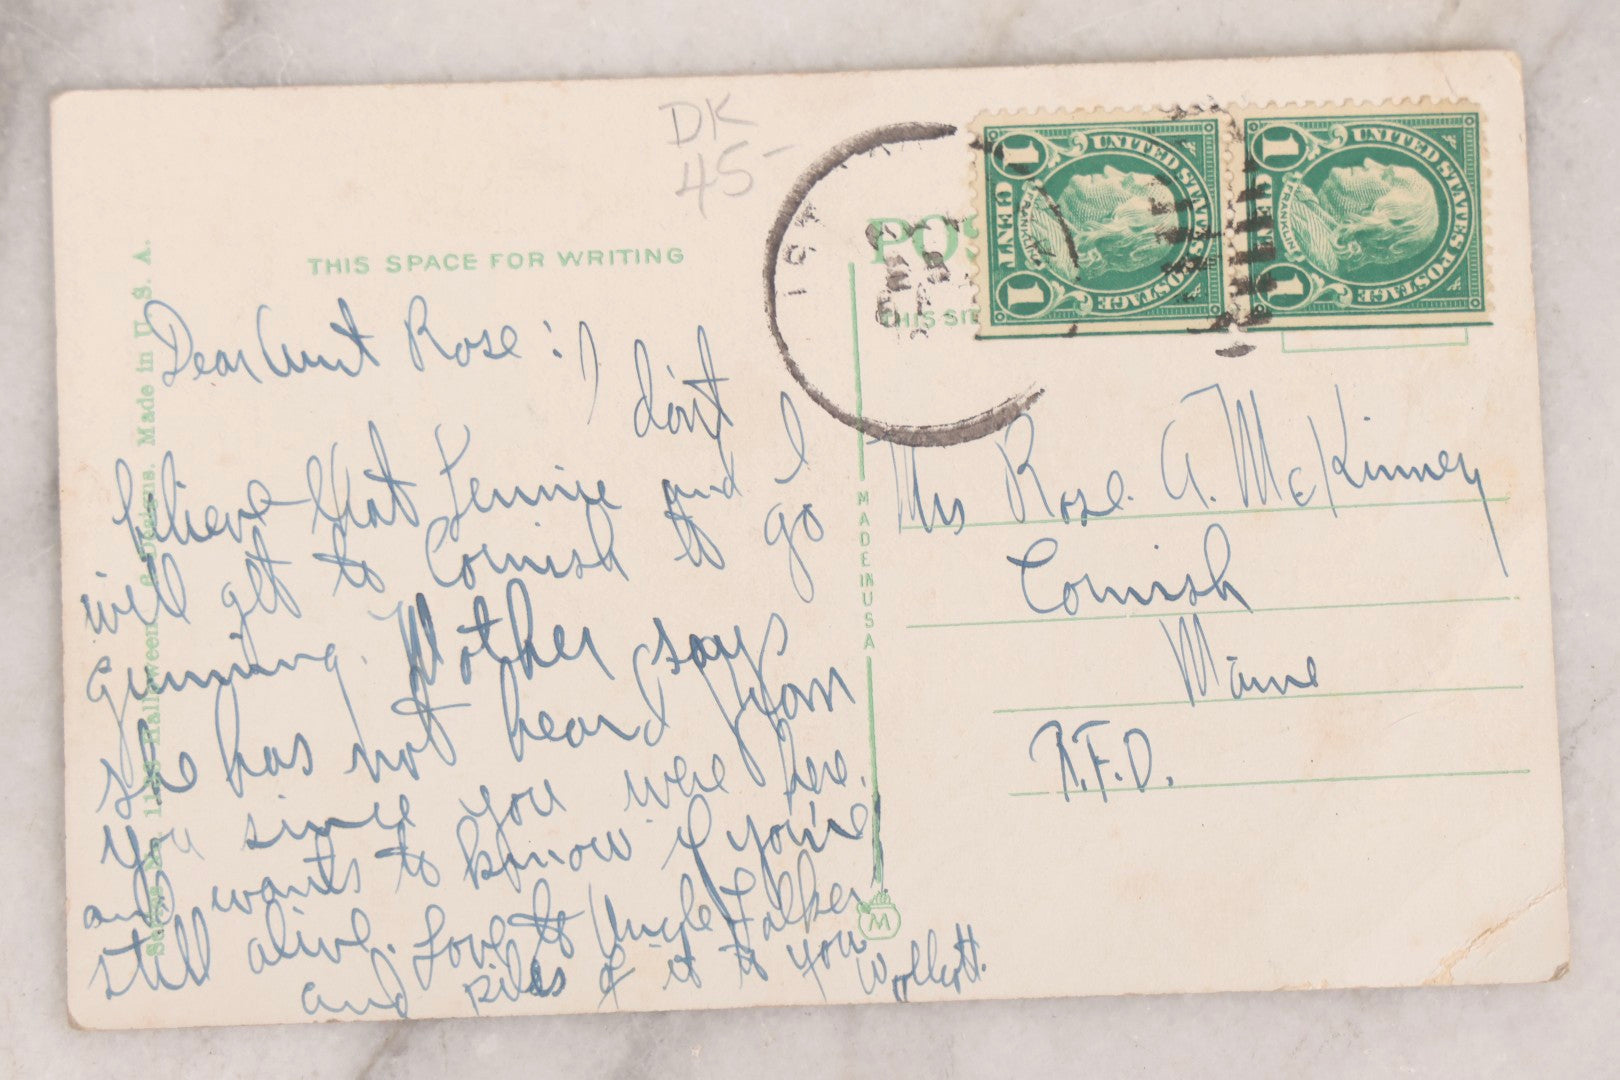 DK
45-
THIS SPACE FOR WRITING
Dear Aunt Rose: I don't
believe that Jennie and I
will get to Cornish to go
gunning. Mother says
she has not heard from
you since you were here.
and wants to know if you're
still alive. Love to Uncle
and piles of it to you
Wollcott.
Halloween Designs. Made in U. S. A.
MADE IN U S A
M
PO
THIS SI
UNITED STATES POSTAGE
1 CENT 1
FRANKLIN
UNITED STATES POSTAGE
1 CENT 1
FRANKLIN
Mrs Rose. A. McKinney
Cornish
Maine
R.F.D.